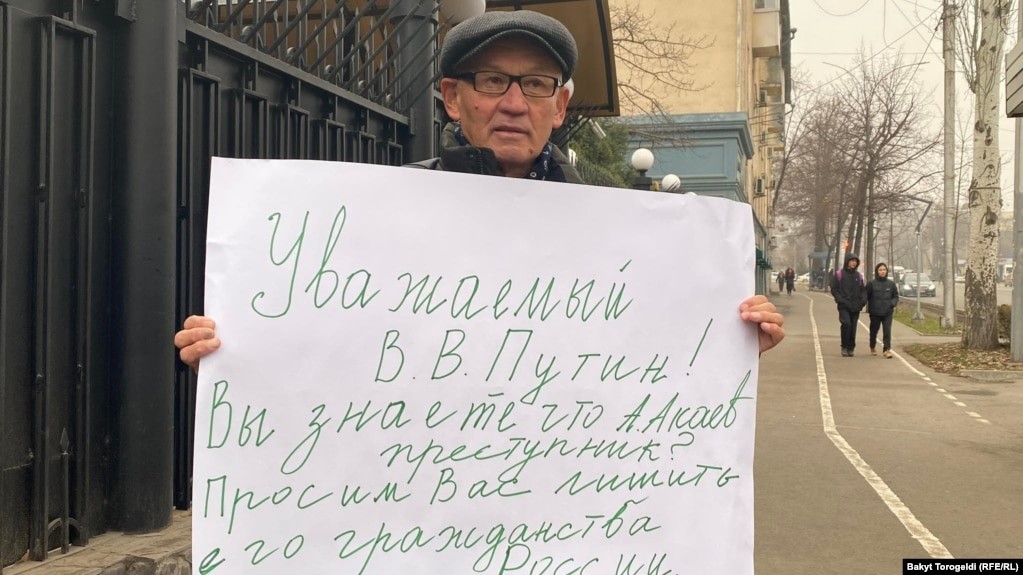 Уважаемый
В.В. Путин!
Вы знаете что А.Акаев
преступник?
Просим Вас лишить
его гражданства
России.
Bakyt Torogeldi (RFE/RL)